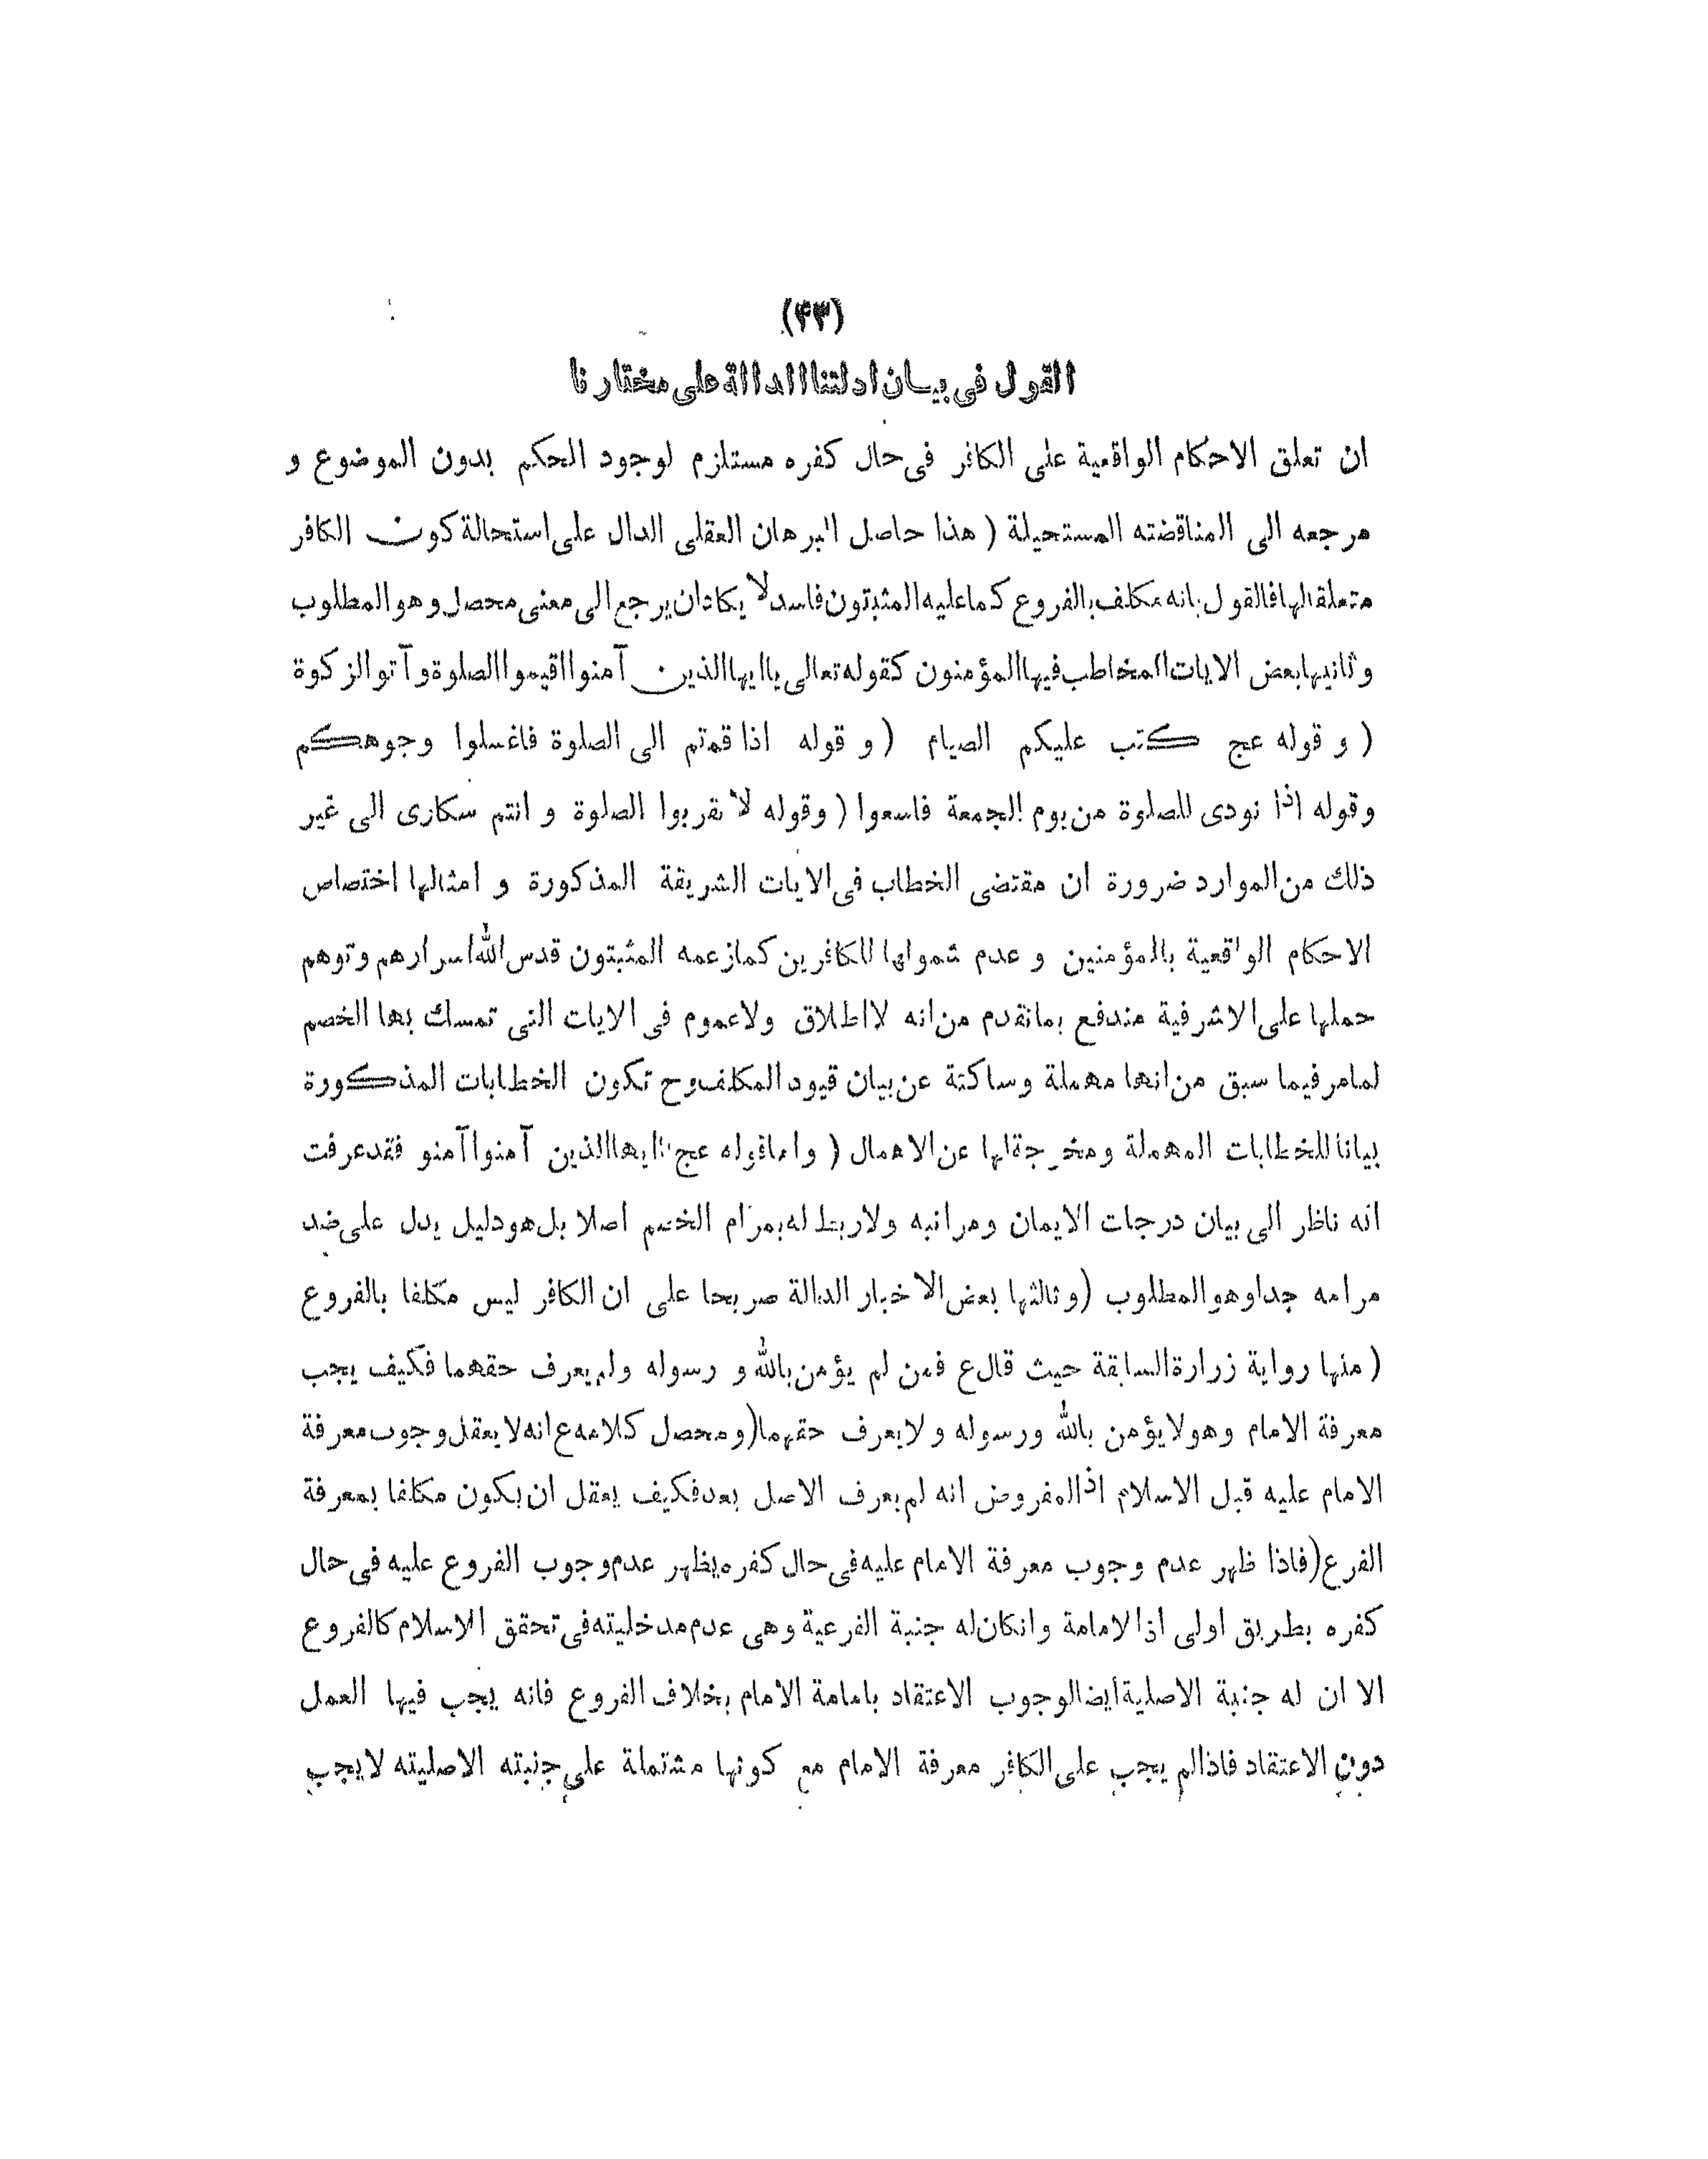 (۴۳)
القول فى بيان ادلتنا الدالة على مختارنا
ان تعلق الاحكام الواقعية على الكافر فى حال كفره مستلزم لوجود الحكم بدون الموضوع و
مرجعه الى المناقضته المستحيلة ( هذا حاصل البرهان العقلى الدال على استحالة كون الكافر
متعلقا لها فالقول بانه مكلف بالفروع كما عليه المثبتون فاسد لا يكاد ان يرجع الى معنى محصل وهو المطلوب
وثانيها بعض الايات المخاطب فيها المؤمنون كقوله تعالى يا ايها الذين آمنوا اقيموا الصلوة و آتو الزكوة
( و قوله عج كتب عليكم الصيام ( و قوله اذا قمتم الى الصلوة فاغسلوا وجوهكم
وقوله اذا نودى للصلوة من يوم الجمعة فاسعوا ( وقوله لا تقربوا الصلوة و انتم سكارى الى غير
ذلك من الموارد ضرورة ان مقتضى الخطاب فى الايات الشريفة المذكورة و امثالها اختصاص
الاحكام الواقعية بالمؤمنين و عدم شمولها للكافرين كما زعمه المثبتون قدس الله اسرارهم و توهم
حملها على الاشرفية مندفع بما تقدم من انه لا اطلاق ولا عموم فى الايات التى تمسك بها الخصم
لما مر فيما سبق من انها مهملة وساكتة عن بيان قيود المكلف وح تكون الخطابات المذكورة
بيانا للخطابات المهملة ومخرجة لها عن الاهمال ( واما قوله عج يا ايها الذين آمنوا آمنو فقد عرفت
انه ناظر الى بيان درجات الايمان ومراتبه ولا ربط له بمرام الخصم اصلا بل هو دليل يدل على ضد
مرامه جدا وهو المطلوب (و ثالثها بعض الاخبار الدالة صريحا على ان الكافر ليس مكلفا بالفروع
( منها رواية زرارة السابقة حيث قال ع فمن لم يؤمن بالله و رسوله ولم يعرف حقهما فكيف يجب
معرفة الامام وهو لا يؤمن بالله ورسوله و لا يعرف حقهما (و محصل كلامه ع انه لا يعقل وجوب معرفة
الامام عليه قبل الاسلام اذ المفروض انه لم يعرف الاصل بعد فكيف يعقل ان يكون مكلفا بمعرفة
الفرع (فاذا ظهر عدم وجوب معرفة الامام عليه فى حال كفره يظهر عدم وجوب الفروع عليه فى حال
كفره بطريق اولى اذ الامامة وانكان له جنبة الفرعية وهى عدم مدخليته فى تحقق الاسلام كالفروع
الا ان له جنبة الاصلية ايضا لوجوب الاعتقاد بامامة الامام بخلاف الفروع فانه يجب فيها العمل
دون الاعتقاد فاذا لم يجب على الكافر معرفة الامام مع كونها مشتملة على جنبته الاصليته لا يجب